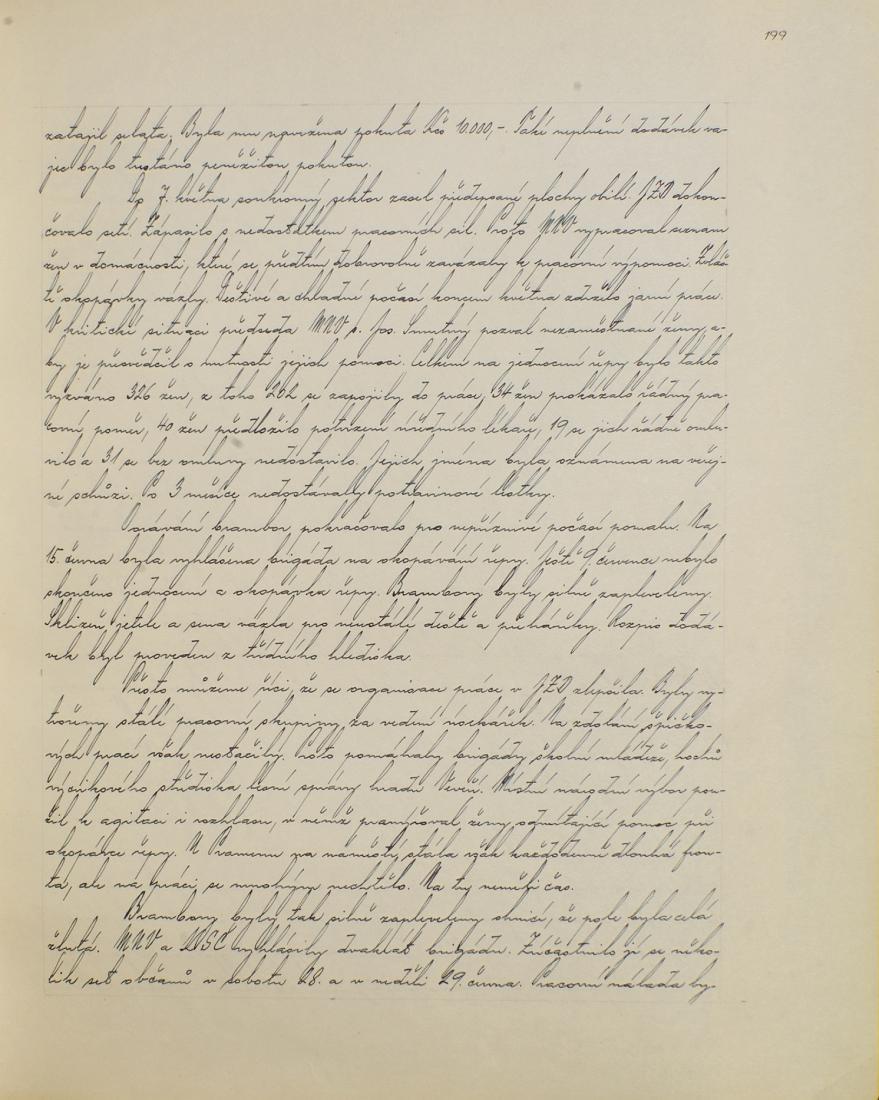 199
zatajil selata. Byla mu vyměřena pokuta Kčs 10.000,-. Také neplnění dodávek va-
jec bylo trestáno peněžitou pokutou.
Do 7. května soukromý sektor zasel předepsané plochy obilí. JZD dokon-
čovalo setí. Zápasilo s nedostatkem pracovních sil. Proto MNV vypracoval seznam
žen v domácnosti, které se předtím dobrovolně zavázaly k pracovní výpomoci. Zvláš-
tě okopávky vázly. Deštivé a chladné počasí koncem května zdrželo jarní práce.
V kritické situaci předseda MNV s. Jos. Smutný pozval nezaměstnané ženy, a-
by je přesvědčil o nutnosti jejich pomoci. Celkem na jednocení řepy bylo takto
vyzváno 326 žen, z toho 202 se zapojily do práce, 34 žen prokázalo řádný pra-
covní poměr, 40 žen předložilo potvrzení úředního lékaře, 19 se jich řádně omlu-
vilo a 31 se bez omluvy nedostavilo. Jejich jména byla oznámena na veřej-
né schůzi. Po 3 měsíce nedostávaly potravinové lístky.
Vorávání brambor pokračovalo pro nepříznivé počasí pomalu. Na
15. června byla vyhlášena brigáda na okopávání řepy. Ještě 9. července nebylo
skončeno jednocení a okopávka řepy. Brambory byly silně zapleveleny.
Sklizeň jetele a sena vázla pro neustálé deště a přeháňky. Rozpis dodá-
vek byl proveden z třídního hlediska.
Přesto můžeme říci, že se organisace práce v JZD zlepšila. Byly vy-
tvořeny stálé pracovní skupiny za vedení Na zdolání špičko-
vých prací však nestačily. Proto pomáhaly brigády školní mládeže, hochů
výcvikového střediska lesní správy hradu Veveří. Místní národní výbor pou-
žil k agitaci i rozhlasu, v němž pranýřoval ženy odmítající pomoc při
okopávce řepy. U Pramenu na náměstí stála však každodenně dlouhá fron-
ta, ale na práci se mnohým nechtělo. Na tu neměli čas.
Brambory byly tak silně zapleveleny ohnicí, že pole byla celá
žlutá. MNV a vyhlásily dvakrát brigádu. Zúčastnilo jí se něko-
lik set občanů v sobotu 28. a v neděli 29. června. Pracovní nálada by-